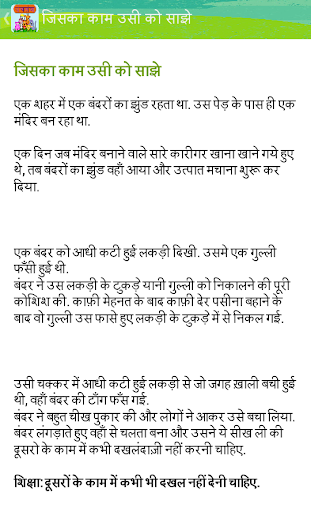 जिसका काम उसी को साझे
जिसका काम उसी को साझे
एक शहर में एक बंदरों का झुंड रहता था. उस पेड़ के पास ही एक
मंदिर बन रहा था.
एक दिन जब मंदिर बनाने वाले सारे कारीगर खाना खाने गये हुए
थे, तब बंदरों का झुंड वहाँ आया और उत्पात मचाना शुरू कर
दिया.
एक बंदर को आधी कटी हुई लकड़ी दिखी. उसमे एक गुल्ली
फँसी हुई थी.
बंदर ने उस लकड़ी के टुकड़े यानी गुल्ली को निकालने की पूरी
कोशिश की. काफ़ी मेहनत के बाद काफ़ी देर पसीना बहाने के
बाद वो गुल्ली उस फासे हुए लकड़ी के टुकड़े में से निकल गई.
उसी चक्कर में आधी कटी हुई लकड़ी से जो जगह ख़ाली बची हुई
थी, वहाँ बंदर की टाँग फँस गई.
बंदर ने बहुत चीख पुकार की और लोगों ने आकर उसे बचा लिया.
बंदर लंगड़ाते हुए वहाँ से चलता बना और उसने ये सीख ली की
दूसरो के काम में कभी दखलंदाज़ी नहीं करनी चाहिए.
शिक्षा: दूसरों के काम में कभी भी दखल नहीं देनी चाहिए.